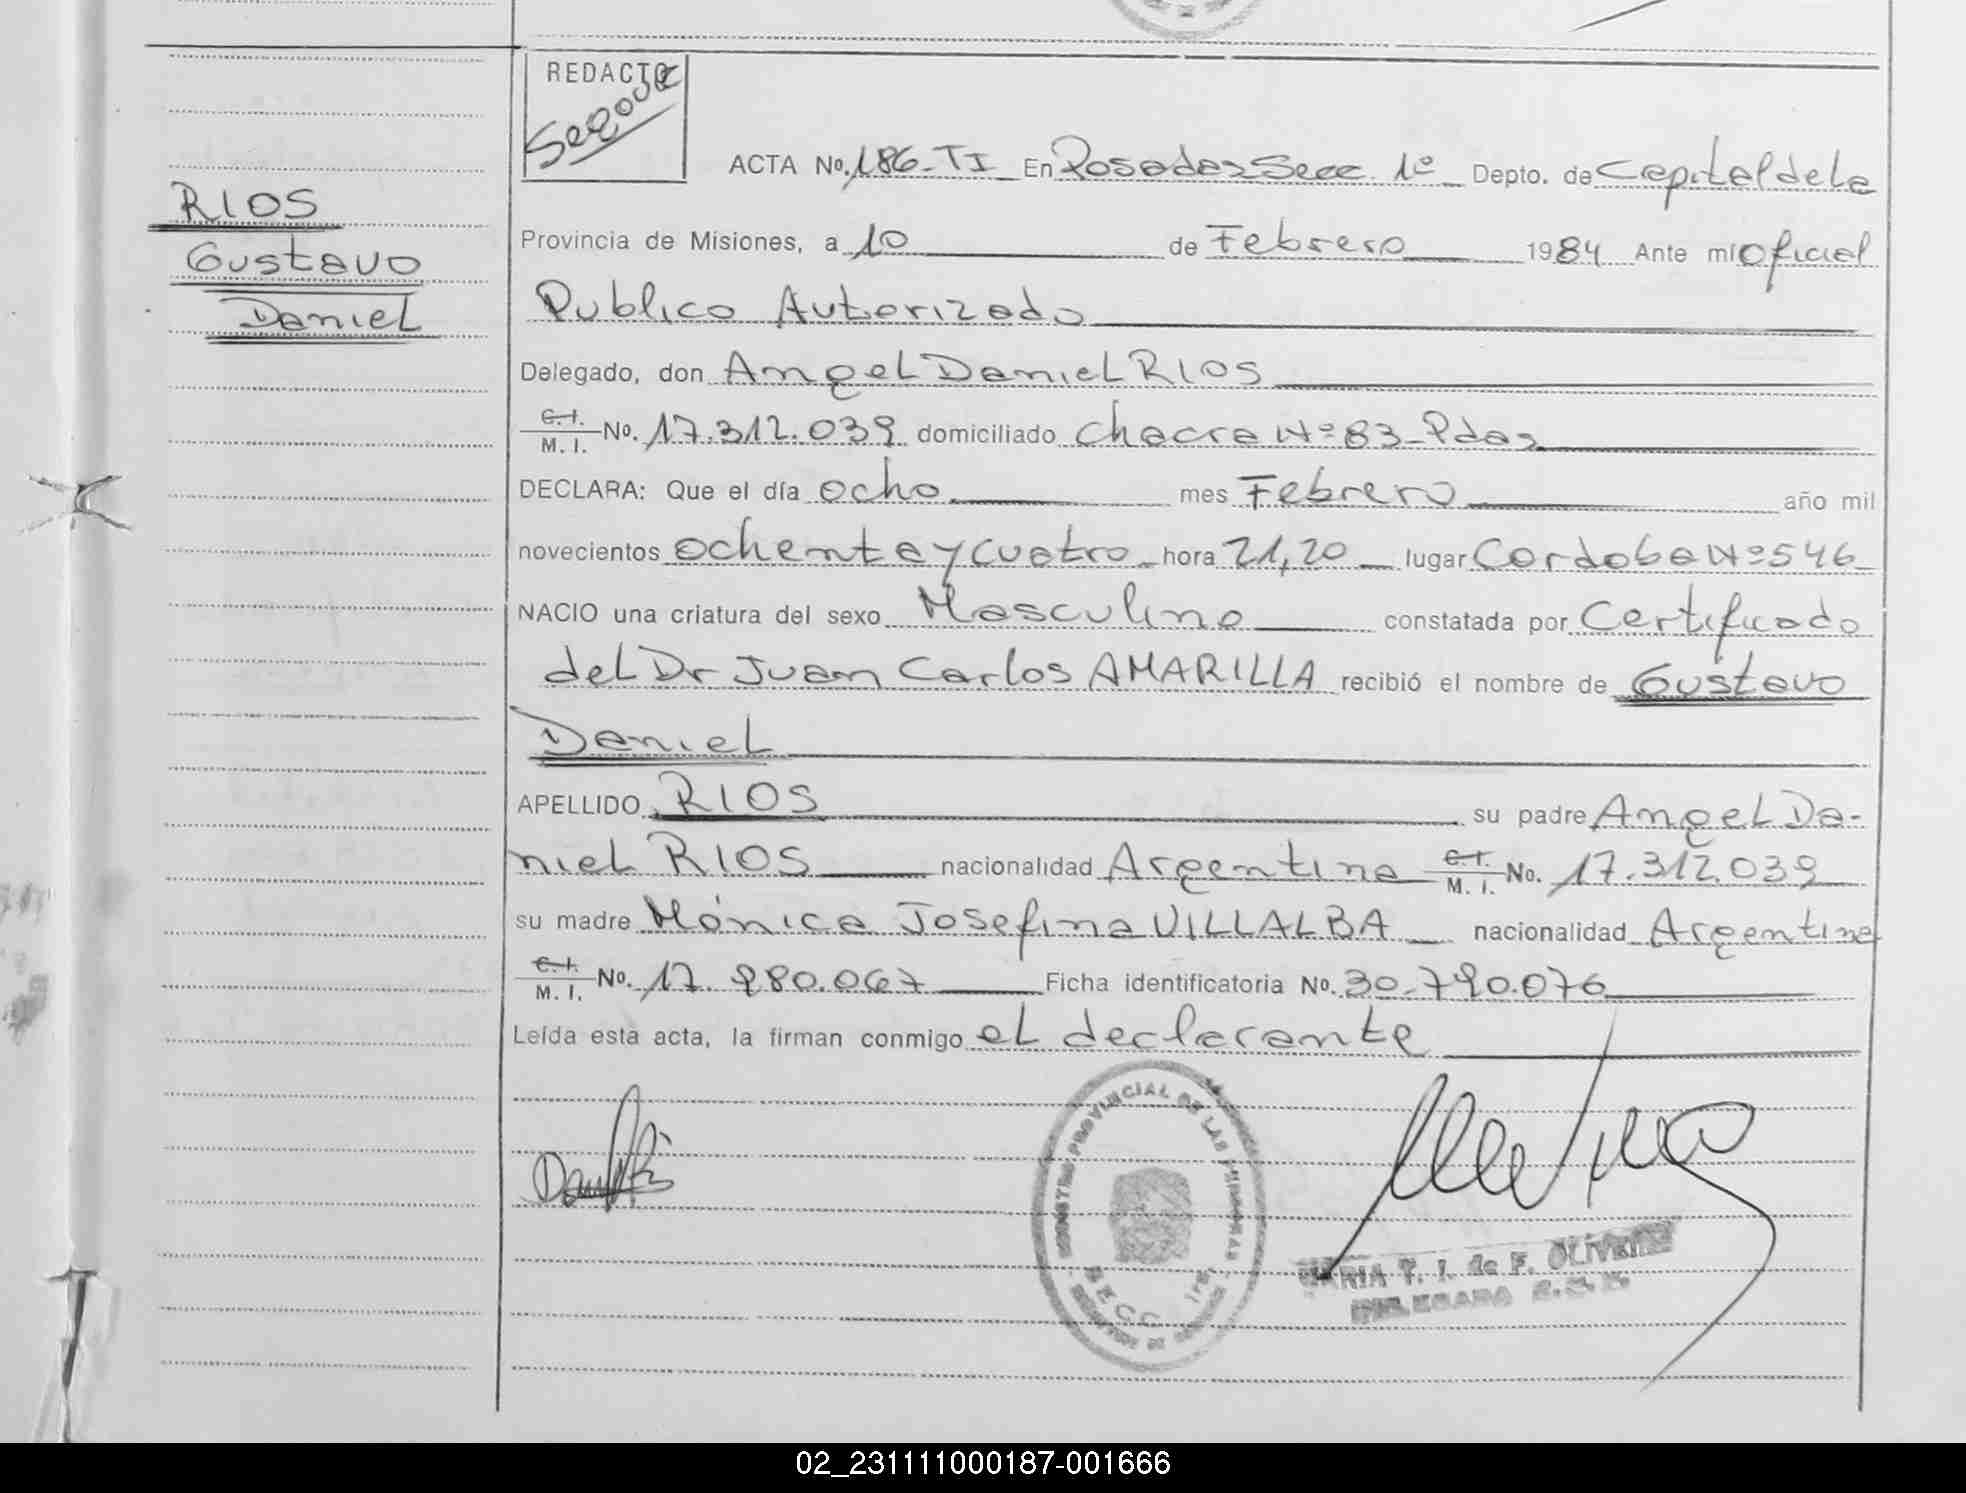 REDACTO
Segovia
ACTA No. 186-TI En Posadas Secc. 1º Depto. de Capital de la
RIOS
Provincia de Misiones, a 10 de Febrero 1984 Ante mí Oficial
Gustavo
Publico Autorizado
Daniel
Delegado, don Angel Daniel RIOS
C.I. M. I. No. 17.312.039 domiciliado Chacra Nº 83-Pdas
DECLARA: Que el día ocho mes Febrero año mil
novecientos ochenta y cuatro hora 21,20 lugar Cordoba Nº 546
NACIO una criatura del sexo Masculino constatada por Certificado
del Dr Juan Carlos AMARILLA recibió el nombre de Gustavo
Daniel
APELLIDO RIOS su padre Angel Da-
niel RIOS nacionalidad Argentina C.I. M. I. No. 17.312.039
su madre Mónica Josefina VILLALBA nacionalidad Argentina
C.I. M. I. No. 17.980.067 Ficha identificatoria No. 30.790.076
Leída esta acta, la firman conmigo el declarante
REGISTRO PROVINCIAL DE LAS PERSONAS
SECC. 1ra.
MARIA T. I. de F. OLIVEIRA
DELEGADO
02_231111000187-001666